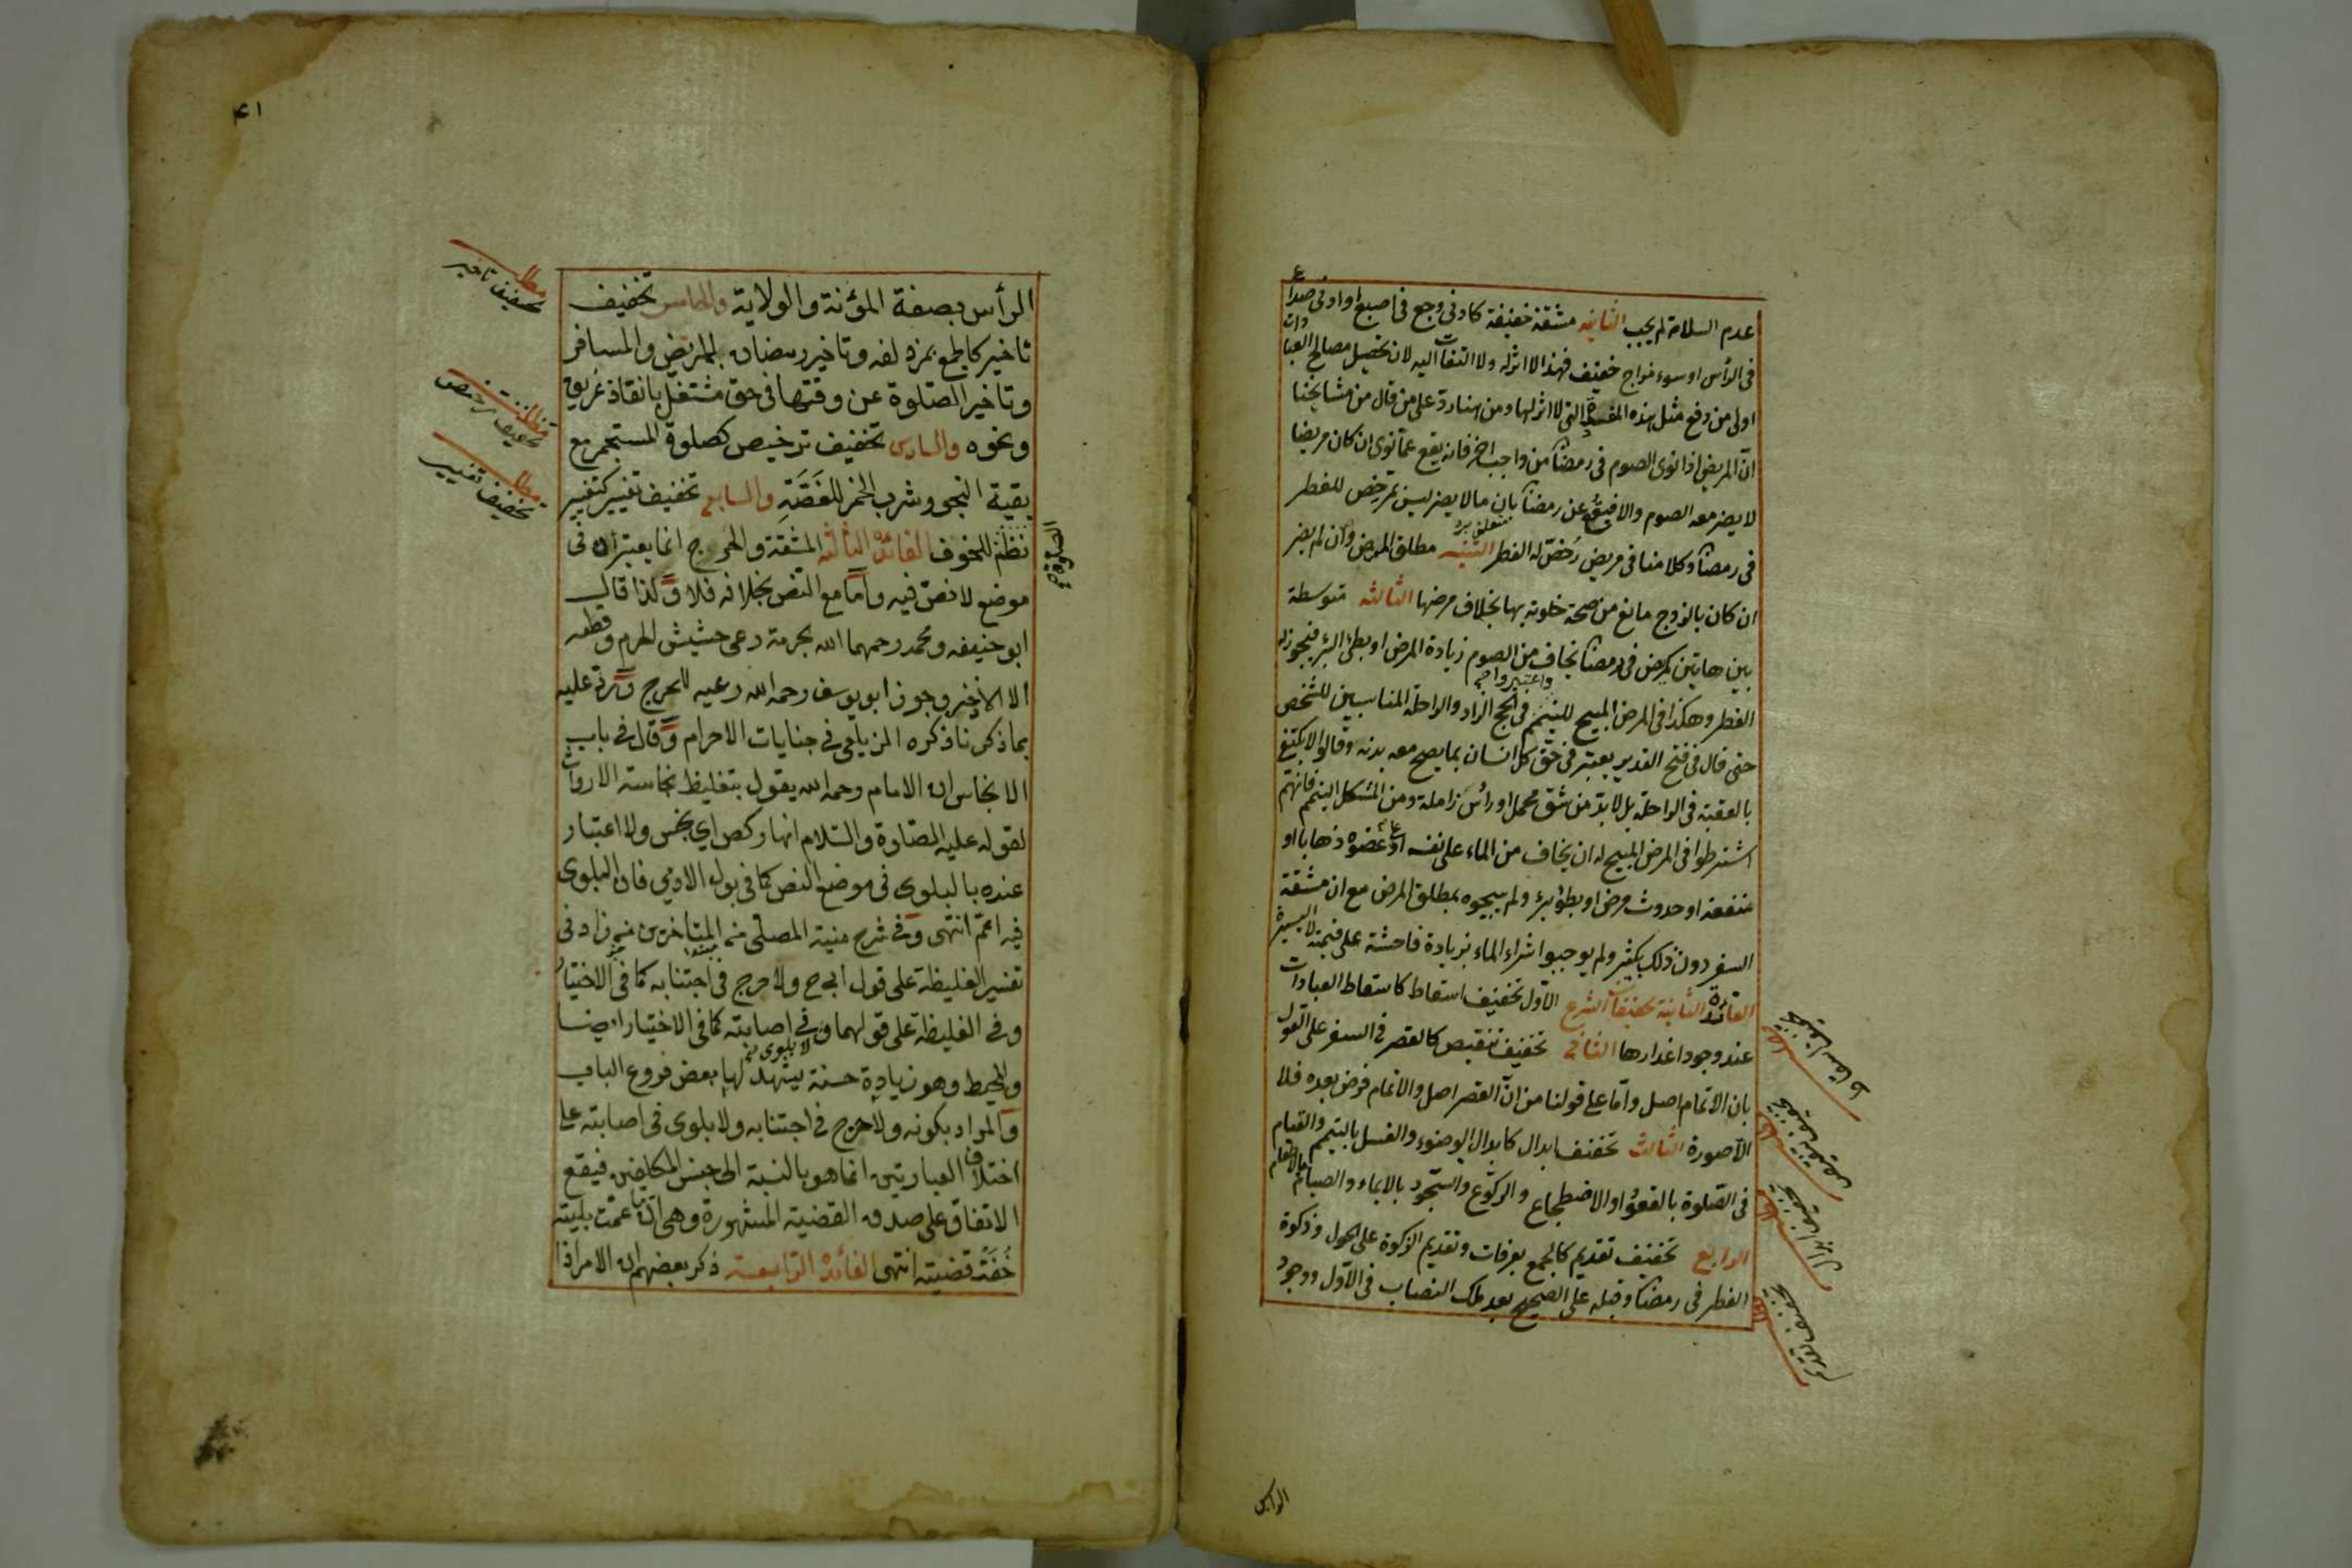 عدم السلامة لم يجب الثانية مشقة خفيفة كادنى وجع فى اصبع او ادنى صداع
فى الرأس او سوء مزاج خفيف فهذا لا اثر له ولا التفات اليه لان تحصيل مصالح العبادات
اولى من دفع مثل هذه المفسدة التى لا اثر لها ومن هنا رد على من قال من مشايخنا
انّ المريض اذا نوى الصوم فى رمضان من واجب اخر فانه يقع عما نوى ان كان مريضا
لا يضر معه الصوم والا فيقع عن رمضان بان ما لا يضر ليس بمرخص للفطر
متعلق برد
فى رمضان وكلامنا فى مريض رُخّص له الفطر التنبيه مطلق المرض وان لم يضر
ان كان بالزوج مانع من صحة خلوته بها بخلاف مرضها الثالثه متوسطة
بين هاتين كمريض فى رمضان يخاف من الصوم زيادة المرض او بطئ البرٔ فيجوز له
الفطر وهكذا فى المرض المبيح للتيمم واعتبروا فى الحج الزاد والراحلة المناسبين للشخص
حتى قال فى فتح القدير يعتبر فى حق كل انسان بما يصح معه بدنه وقالوا لا يكتفى
بالعقبة فى الراحلة بل لا بدّ من شق محمل او رأس زاملة ومن المشكل التيمم فانهم
اشترطوا فى المرض المبيح له ان يخاف من الماء على نفسه او على عضوه ذهابا او
منفعة او حدوث مرض او بطؤ برٔ ولم يبيحوه بمطلق المرض مع ان مشقة
السفر دون ذلك بكثير ولم يوجبوا شراء الماء بزيادة فاحشة على قيمته لا اليسيرة
الفائدة الثانية تخفيفات الشرع الاول تخفيف اسقاط كاسقاط العبادات
عند وجود اعذارها الثانى تخفيف تنقيص كالقصر فى السفر على القول
بان الاتمام اصل وامّا على قولنا من انّ القصر اصل والاتمام فرض بعده فلا
الّا صورة الثالث تخفيف ابدال كابدال الوضوء والغسل بالتيمم والقيام
فى الصّلوة بالقعود او الاضطجاع والركوع والسّجود بالايماء والصيام بالاطعام
الرابع تخفيف تقديم كالجمع بعرفات وتقديم الزكوة على الحول وزكوة
الفطر فى رمضان وقبله على الصحيح بعد ملك النصاب فى الاوّل ووجود
تخفيف اسقاط
تخفيف تنقيص
تخفيف ابدال
تخفيف تقديم
الرأس
٤١
الرأس بصفة المؤنة والولاية والخامس تخفيف
تاخير كالجمع بمزدلفه وتاخير رمضان للمريض والمسافر
وتاخير الصّلوة عن وقتها فى حق مشتغل بانقاذ غريق
ونحوه والسادس تخفيف ترخيص كصلوة المستجمر مع
بقية النجو وشرب الخمر للغَصَّةِ والسابع تخفيف تغيير كتغيير
نظم للخوف الفائدة الثالثة المشقة والحرج انما يعتبران فى
موضع لا نصّ فيه وامّا مع النّص بخلافه فلا وكذا قال
ابو حنيفه ومحمد رحمهما الله بحرمة رعى حشيش الحرم وقطعه
الا الاذخر وجوز ابو يوسف رحمه الله رعيه للحرج ورُدّ عليه
بما ذكرنا ذكره الزيلعى فى جنايات الاحرام وقال فى باب
الانجاس ان الامام رحمه الله يقول بتغليظ نجاسة الارواث
لقوله عليه الصّلوة والسّلام انها ركس اي نجس ولا اعتبار
عنده بالبلوى فى موضع النص كما فى بول الادمي فان البلوى
فيه اعمّ انتهى وفى شرح منية المصلى من المتاخرين من زاد فى
تفسير الغليظة على قول ابى ح ولا حرج فى اجتنابه كما فى الاختيار
وفى الغليظة على قولهما ولا بلوى فى اصابته كما فى الاختيار ايضا
والمحيط وهو زيادة حسنة يشهد لها بعض فروع الباب
والمراد بكونه ولا حرج فى اجتنابه ولا بلوى فى اصابته على
اختلاف العبارتين انما هو بالنسبة الى جنس المكلفين فيقع
الاتفاق على صدق القضية المشهورة وهى ان ما عمّت بليته
خُفّت قضيته انتهى الفائدة الرابعة ذكر بعضهم ان الامر اذا
الصلوة صح
مطلب تخفيف تاخير
مطلب تخفيف ترخيص
مطلب تخفيف تغيير